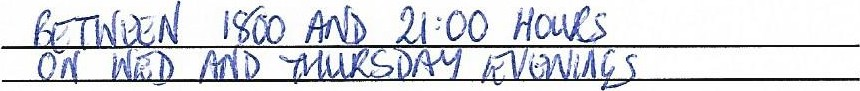 BETWEEN 1800 AND 21:00 HOURS
ON WED AND THURSDAY EVENINGS